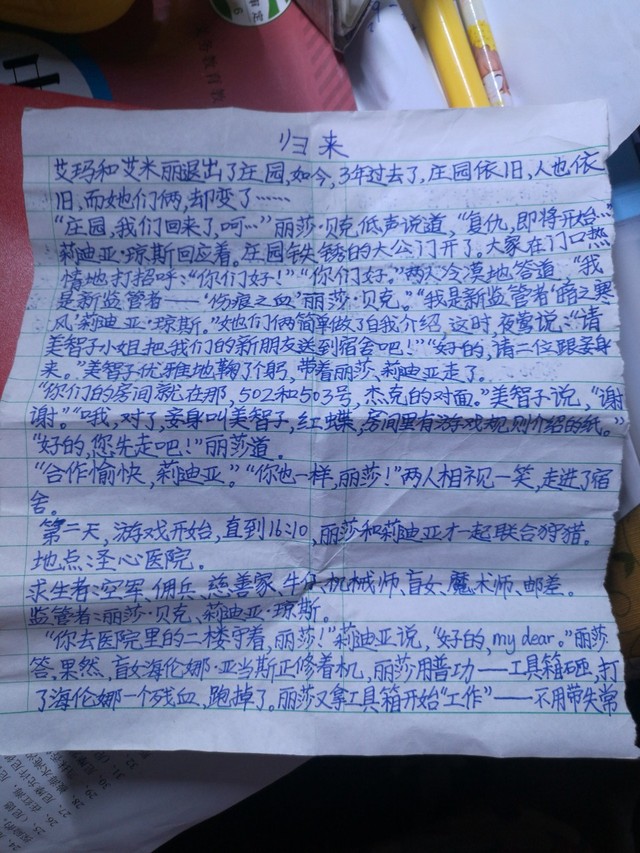 归来
艾玛和艾米丽退出了庄园,如今,3年过去了,庄园依旧,人也依
旧,而她们俩,却变了……
“庄园,我们回来了,呵…”丽莎·贝克低声说道,“复仇,即将开始…
莉迪亚·琼斯回应着。庄园铁锈的大公门开了。大家在门口热
情地打招呼:“你们好!”“你们好。”两人冷漠地答道。“我
是新监管者——‘伤痕之血’丽莎·贝克。”“我是新监管者‘暗之寒
风’莉迪亚·琼斯。”她们俩简单做了自我介绍,这时,夜莺说:“请
美智子小姐把我们的新朋友送到宿舍吧!”“好的,请二位跟妾身
来。”美智子优雅地鞠了个躬,带着丽莎、莉迪亚走了。
“你们的房间就在那,502和503号,杰克的对面。”美智子说,“谢
谢。”“哦,对了,妾身叫美智子,红蝶,房间里有游戏规则介绍的纸。”
“好的,您先走吧!”丽莎道。
“合作愉快,莉迪亚。”“你也一样,丽莎!”两人相视一笑,走进了宿
舍。
第二天,游戏开始,直到16:10,丽莎和莉迪亚才一起联合狩猎。
地点:圣心医院。
求生者:空军、佣兵、慈善家、牛仔、机械师、盲女、魔术师、邮差。
监管者:丽莎·贝克、莉迪亚·琼斯。
“你去医院里的二楼守着,丽莎!”莉迪亚说,“好的,my dear。”丽莎
答,果然,盲女海伦娜·亚当斯正修着机,丽莎用普功——工具箱砸,打
了海伦娜一个残血,跑掉了。丽莎又拿工具箱开始“工作”——不用带失常